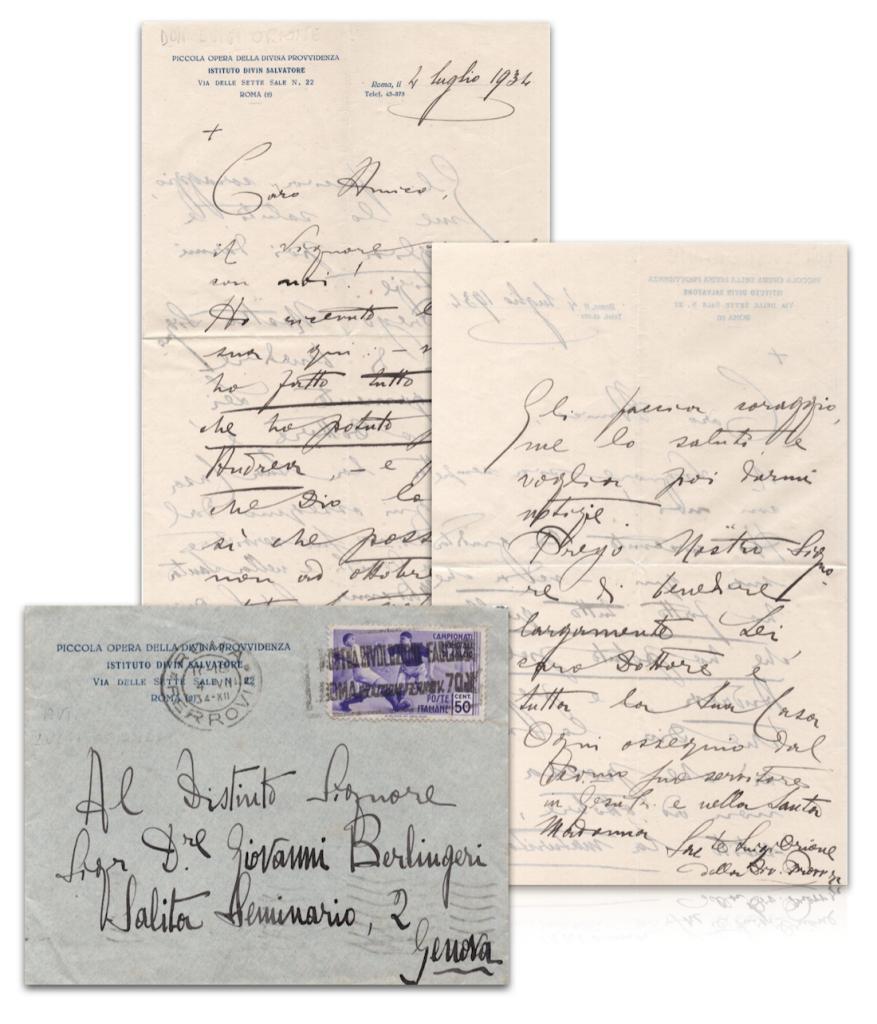 PICCOLA OPERA DELLA DIVINA PROVVIDENZA
ISTITUTO DIVIN SALVATORE
VIA DELLE SETTE SALE N. 22
ROMA
Roma, li 4 luglio 1934
Telef. 43-373
+
Caro Amico,
il Signore
con noi!
Ho ricevuto
sua qui -
ho fatto tutto
che ho potuto
Andrea - e
che Dio la
sì che poss
non ad ottobre
Gli faccia coraggio,
me lo saluti, e
voglia poi darmi
notizie.
Prego Nostro Signo-
re di benedire
largamente Lei
caro Dottore e
tutta la Sua Casa
Ogni ossequio dal
suo servitore
in Gesù Cr. e nella Santa
Madonna
Sac te Luigi Orione
della Div. Provv.
PICCOLA OPERA DELLA DIVINA PROVVIDENZA
ISTITUTO DIVIN SALVATORE
VIA DELLE SETTE SALE N. 22
ROMA
FERROVIA
CAMPIONATI
CALCIO
POSTE
ITALIANE
CENT.
50
Al Distinto Signore
Sigr Dre Giovanni Berlingeri
Salita Seminario, 2
Genova